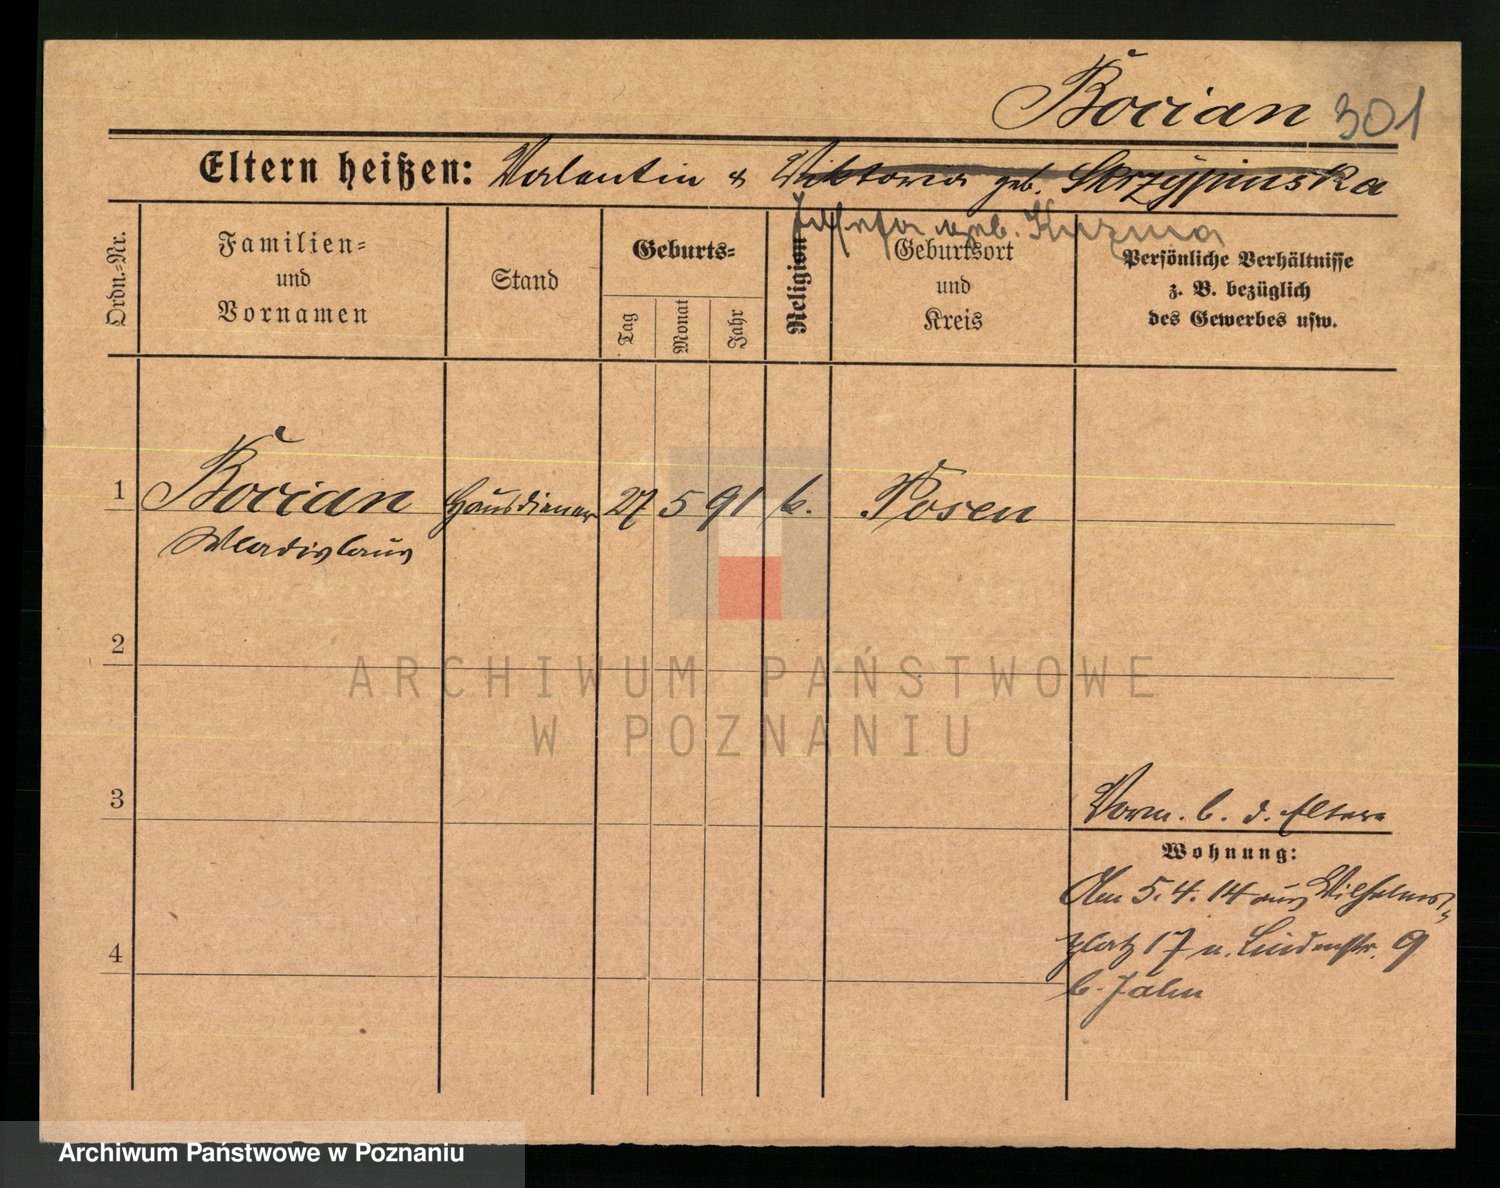 Bocian 301
Eltern heißen: Valentin & Wiktoria geb. Skrzypinska
Josefa geb. Kuzma
Ordn.-Nr.
Familien-
und
Vornamen
Stand
Geburts-
Tag
Monat
Jahr
Religion
Geburtsort
und
Kreis
Persönliche Verhältnisse
z. B. bezüglich
des Gewerbes usw.
1 Bocian Hausdiener 27 5 91 k. Posen
Wladislaus
2
3
Vorm. b. d. Eltern
Wohnung:
Am 5.4.14 aus Wilhelms-
platz 17 n. Lindenstr. 9
b. Jahn
4
ARCHIWUM PAŃSTWOWE
W POZNANIU
Archiwum Państwowe w Poznaniu